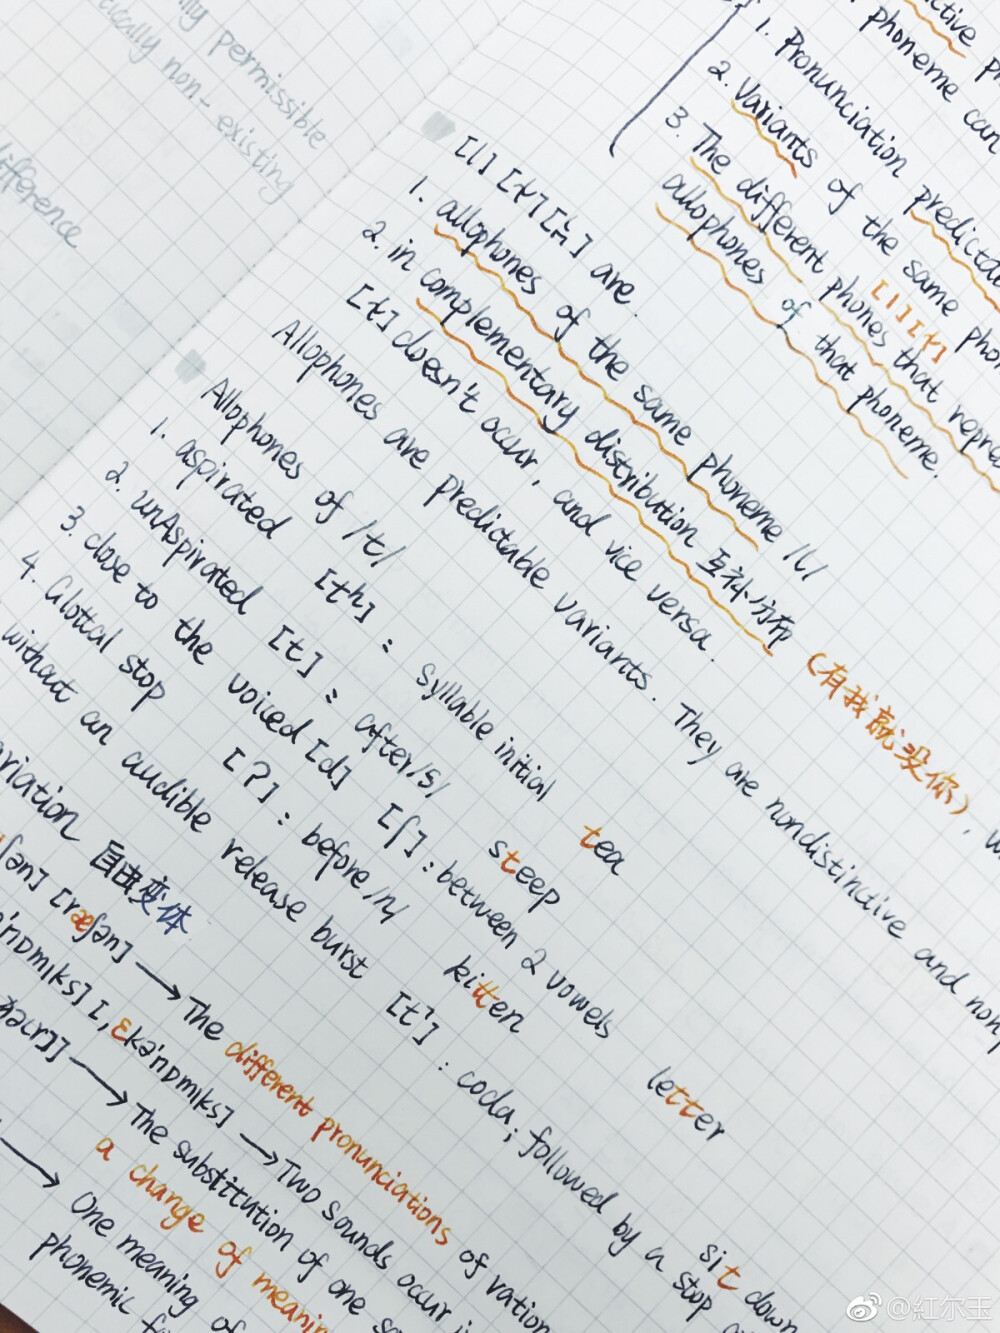 permissible
non-existing
difference
phoneme can
1. Pronunciation
2. Variants of the same
3. The different phones that
[l] [ɫ]
allophones of that phoneme.
[l] [ɫ] [l̥] are
1. allophones of the same phoneme /l/
2. in complementary distribution 互补分布 (有我就没你),
[ɫ] doesn't occur, and vice versa.
Allophones are predictable variants. They are nondistinctive and
Allophones of /t/
1. aspirated [tʰ] : syllable initial tea
2. unAspirated [t] : after/s/ steep
3. close to the voiced [d] [ɾ] : between 2 vowels letter
4. Glottal stop [ʔ] : before/n/ kitten
without an audible release burst [t˺] : coda; followed by a stop sit down
自由变体
[ræʃən] → The different pronunciations of
[ˌɛkəˈnɒmɪks] → Two sounds occur
→ The substitution of one
a change of meaning
→ One meaning of
phonemic
@紅尔玉